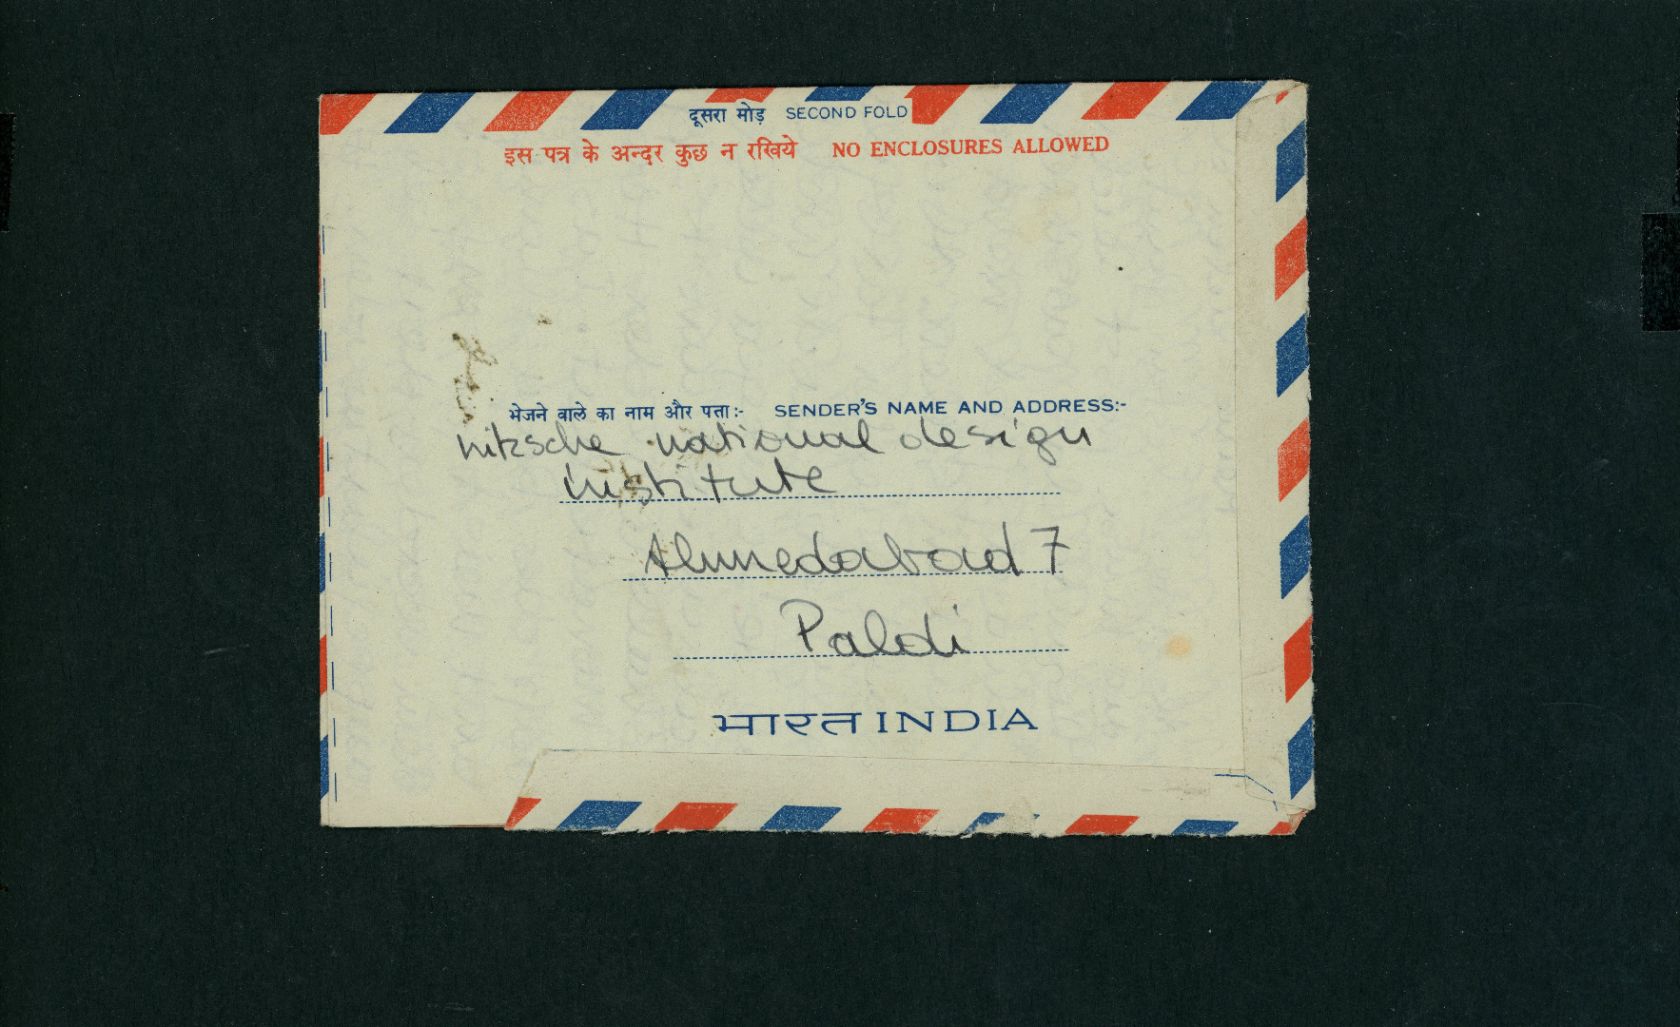 दूसरा मोड़ SECOND FOLD
इस पत्र के अन्दर कुछ न रखिये NO ENCLOSURES ALLOWED
भेजने वाले का नाम और पता:- SENDER'S NAME AND ADDRESS:-
nitzsche national design
institute
Ahmedabad 7
Paldi
भारत INDIA